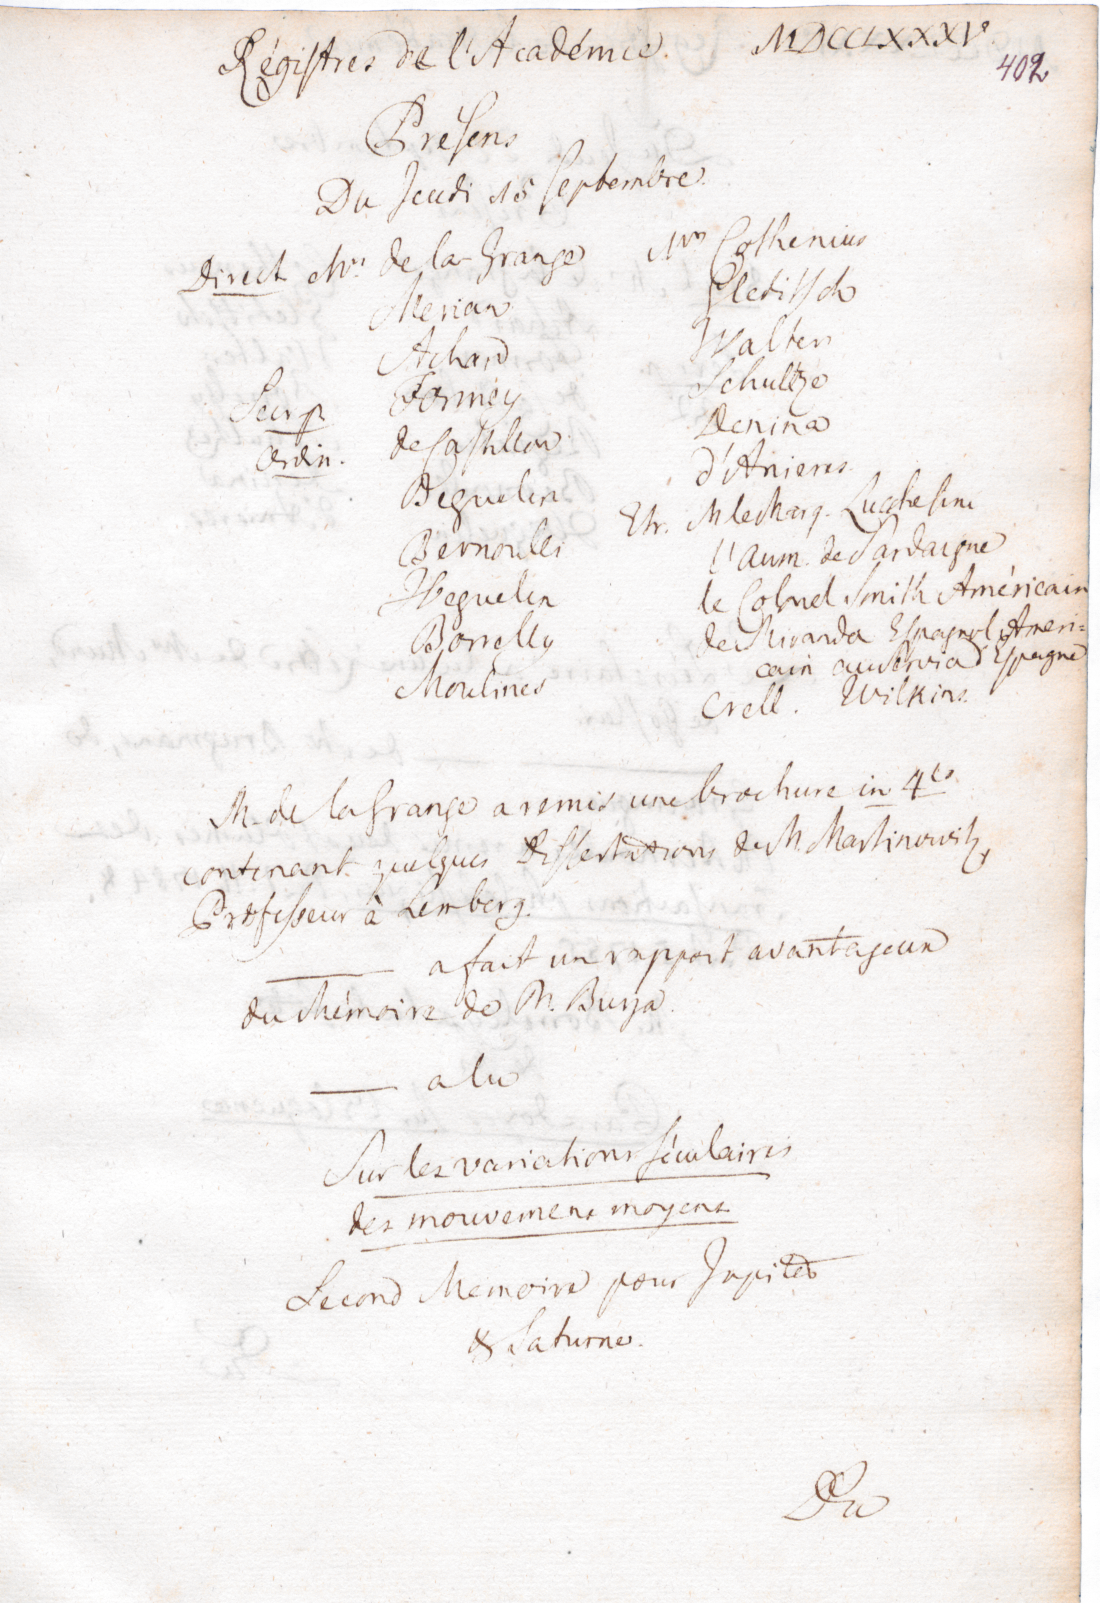 Régistres de l'Académie. MDCCLXXXV.
402
Présens
Du Jeudi 15 Septembre.
Direct Mrs de la Grange
Merian
Achard
Secr. p. Formey
Ordin. de Castillon
Beguelin
Bernoulli
Weguelin
Borrelly
Moulines
Mrs Cothenius
Gleditsch
Walter
Schultze
Denina
d'Anieres.
Etr. M le Marq. Lucchesini
l'aum. de Sardaigne
le Colonel Smith Américain
de Miranda Espagnol Ameri-
cain au service d'Espagne
Crell. Wilkins.
M. de la Grange a remis une brochure in 4to
contenant quelques Dissertations de M. Martinowitz,
Professeur à Lemberg.
——— a fait un rapport avantageux
du Mémoire de M. Burja.
—— a lu
Sur les variations séculaires
des mouvemens moyens
Second Memoire pour Jupiter
& Saturne.
Du